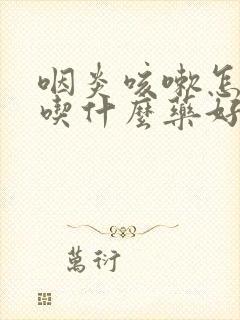 咽炎咳嗽怎
喫什麼藥好
萬衍